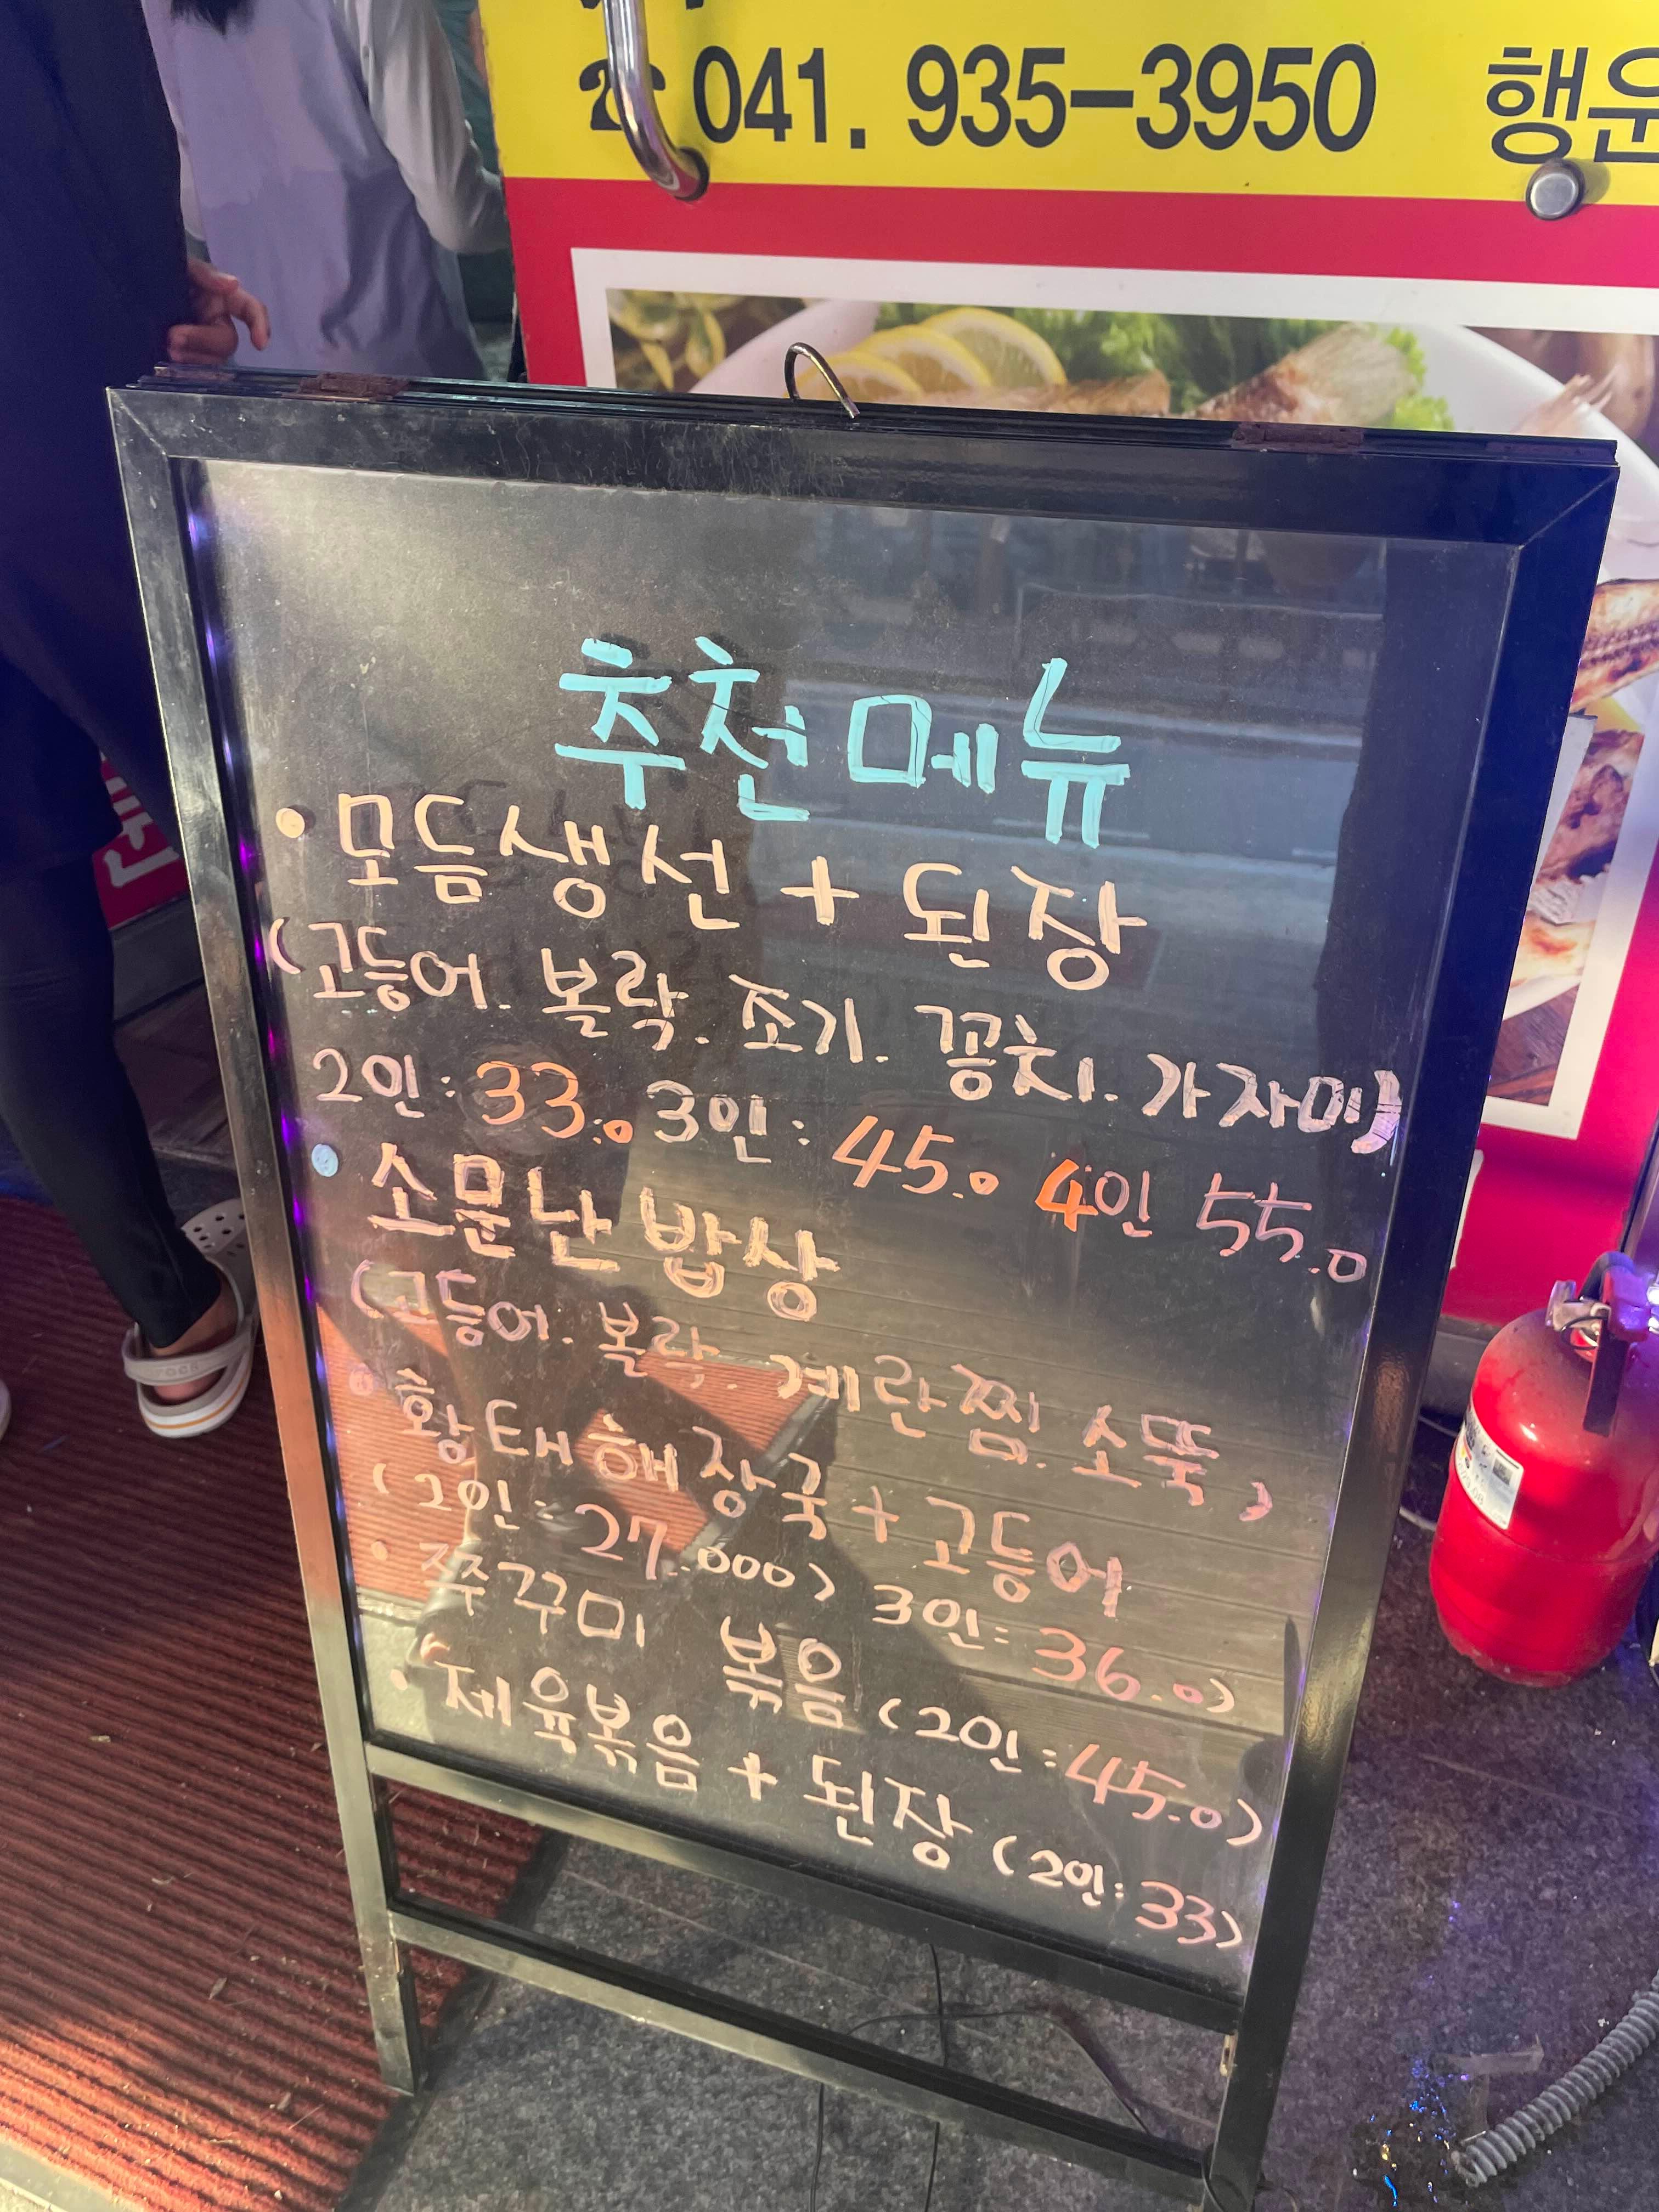 041. 935-3950 행운
추천메뉴
• 모듬생선 + 된장
(고등어. 볼락. 조기. 꽁치. 가자미)
2인: 33.0 3인: 45.0 4인 55.0
• 소문난 밥상
(고등어. 볼락. 계란찜. 소뚝)
• 황태해장국 + 고등어
(2인: 27.000) 3인: 36.0)
• 쭈꾸미 볶음 (2인: 45.0)
• 제육볶음 + 된장 (2인: 33)